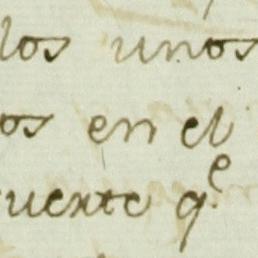 los unos
os en el
uente q.e